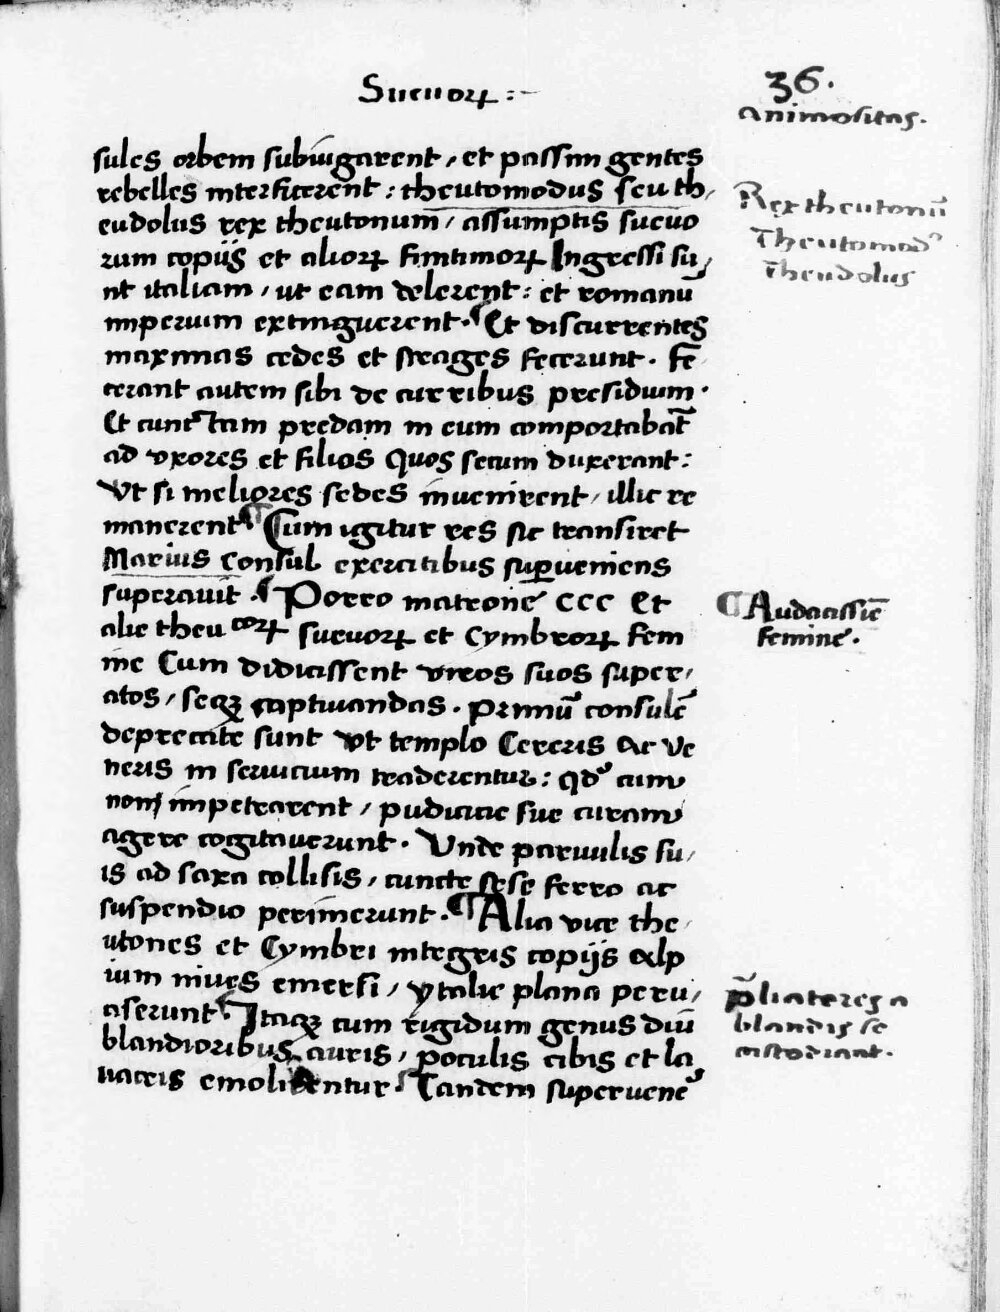 Sueuoꝝ :~
36.
Animositas.
sules orbem subiugarent, et passim gentes
rebelles interficerent : theutomodus seu th,
eudolus rex theutonum, assumptis sueuo
rum copijs et alioꝝ finitimoꝝ Ingressi su,
nt italiam, ut eam delerent : et romanū
imperium extinguerent. ¶ Et discurrentes
maximas cedes et strages fecerunt. Fe
cerant autem sibi de curribus presidium.
Et cunctam predam in eum comportabāt
ad vxores et filios Quos secum duxerant :
Vt si meliores sedes inuenirent, illic re
manerent ¶ Cum igitur res sic transiret
Marius Consul exercitibus suꝑueniens
superauit. ¶ Porro matrone CCC Et
alie theutoꝝ sueuoꝝ et Cymbroꝝ Fem
ine Cum didicissent viros suos super,
atos, seqꝫ captiuandas. Primū consulē
deprecate sunt vt templo Cereris ac Ve
neris in seruicium traderentur : qd' cum
non impetrarent, pudicicie sue curam
agere cogitauerunt. Vnde paruulis su,
is ad saxa collisis, cuncte sese ferro ac
suspendio perimerunt. ¶ Alia vice the,
utones et Cymbri integris copijs alp
ium niues emersi, ytalie plana peru,
aserunt ¶ Itaqꝫ cum rigidum genus diū
blandioribus auris, poculis cibis et la
uacris emolirentur. ¶ Tandem superuene'
Rex theutonū
Theutomod'
Theudolus
¶ Audacissie
femine.
p̄liateres a
blandis se
custodiant.